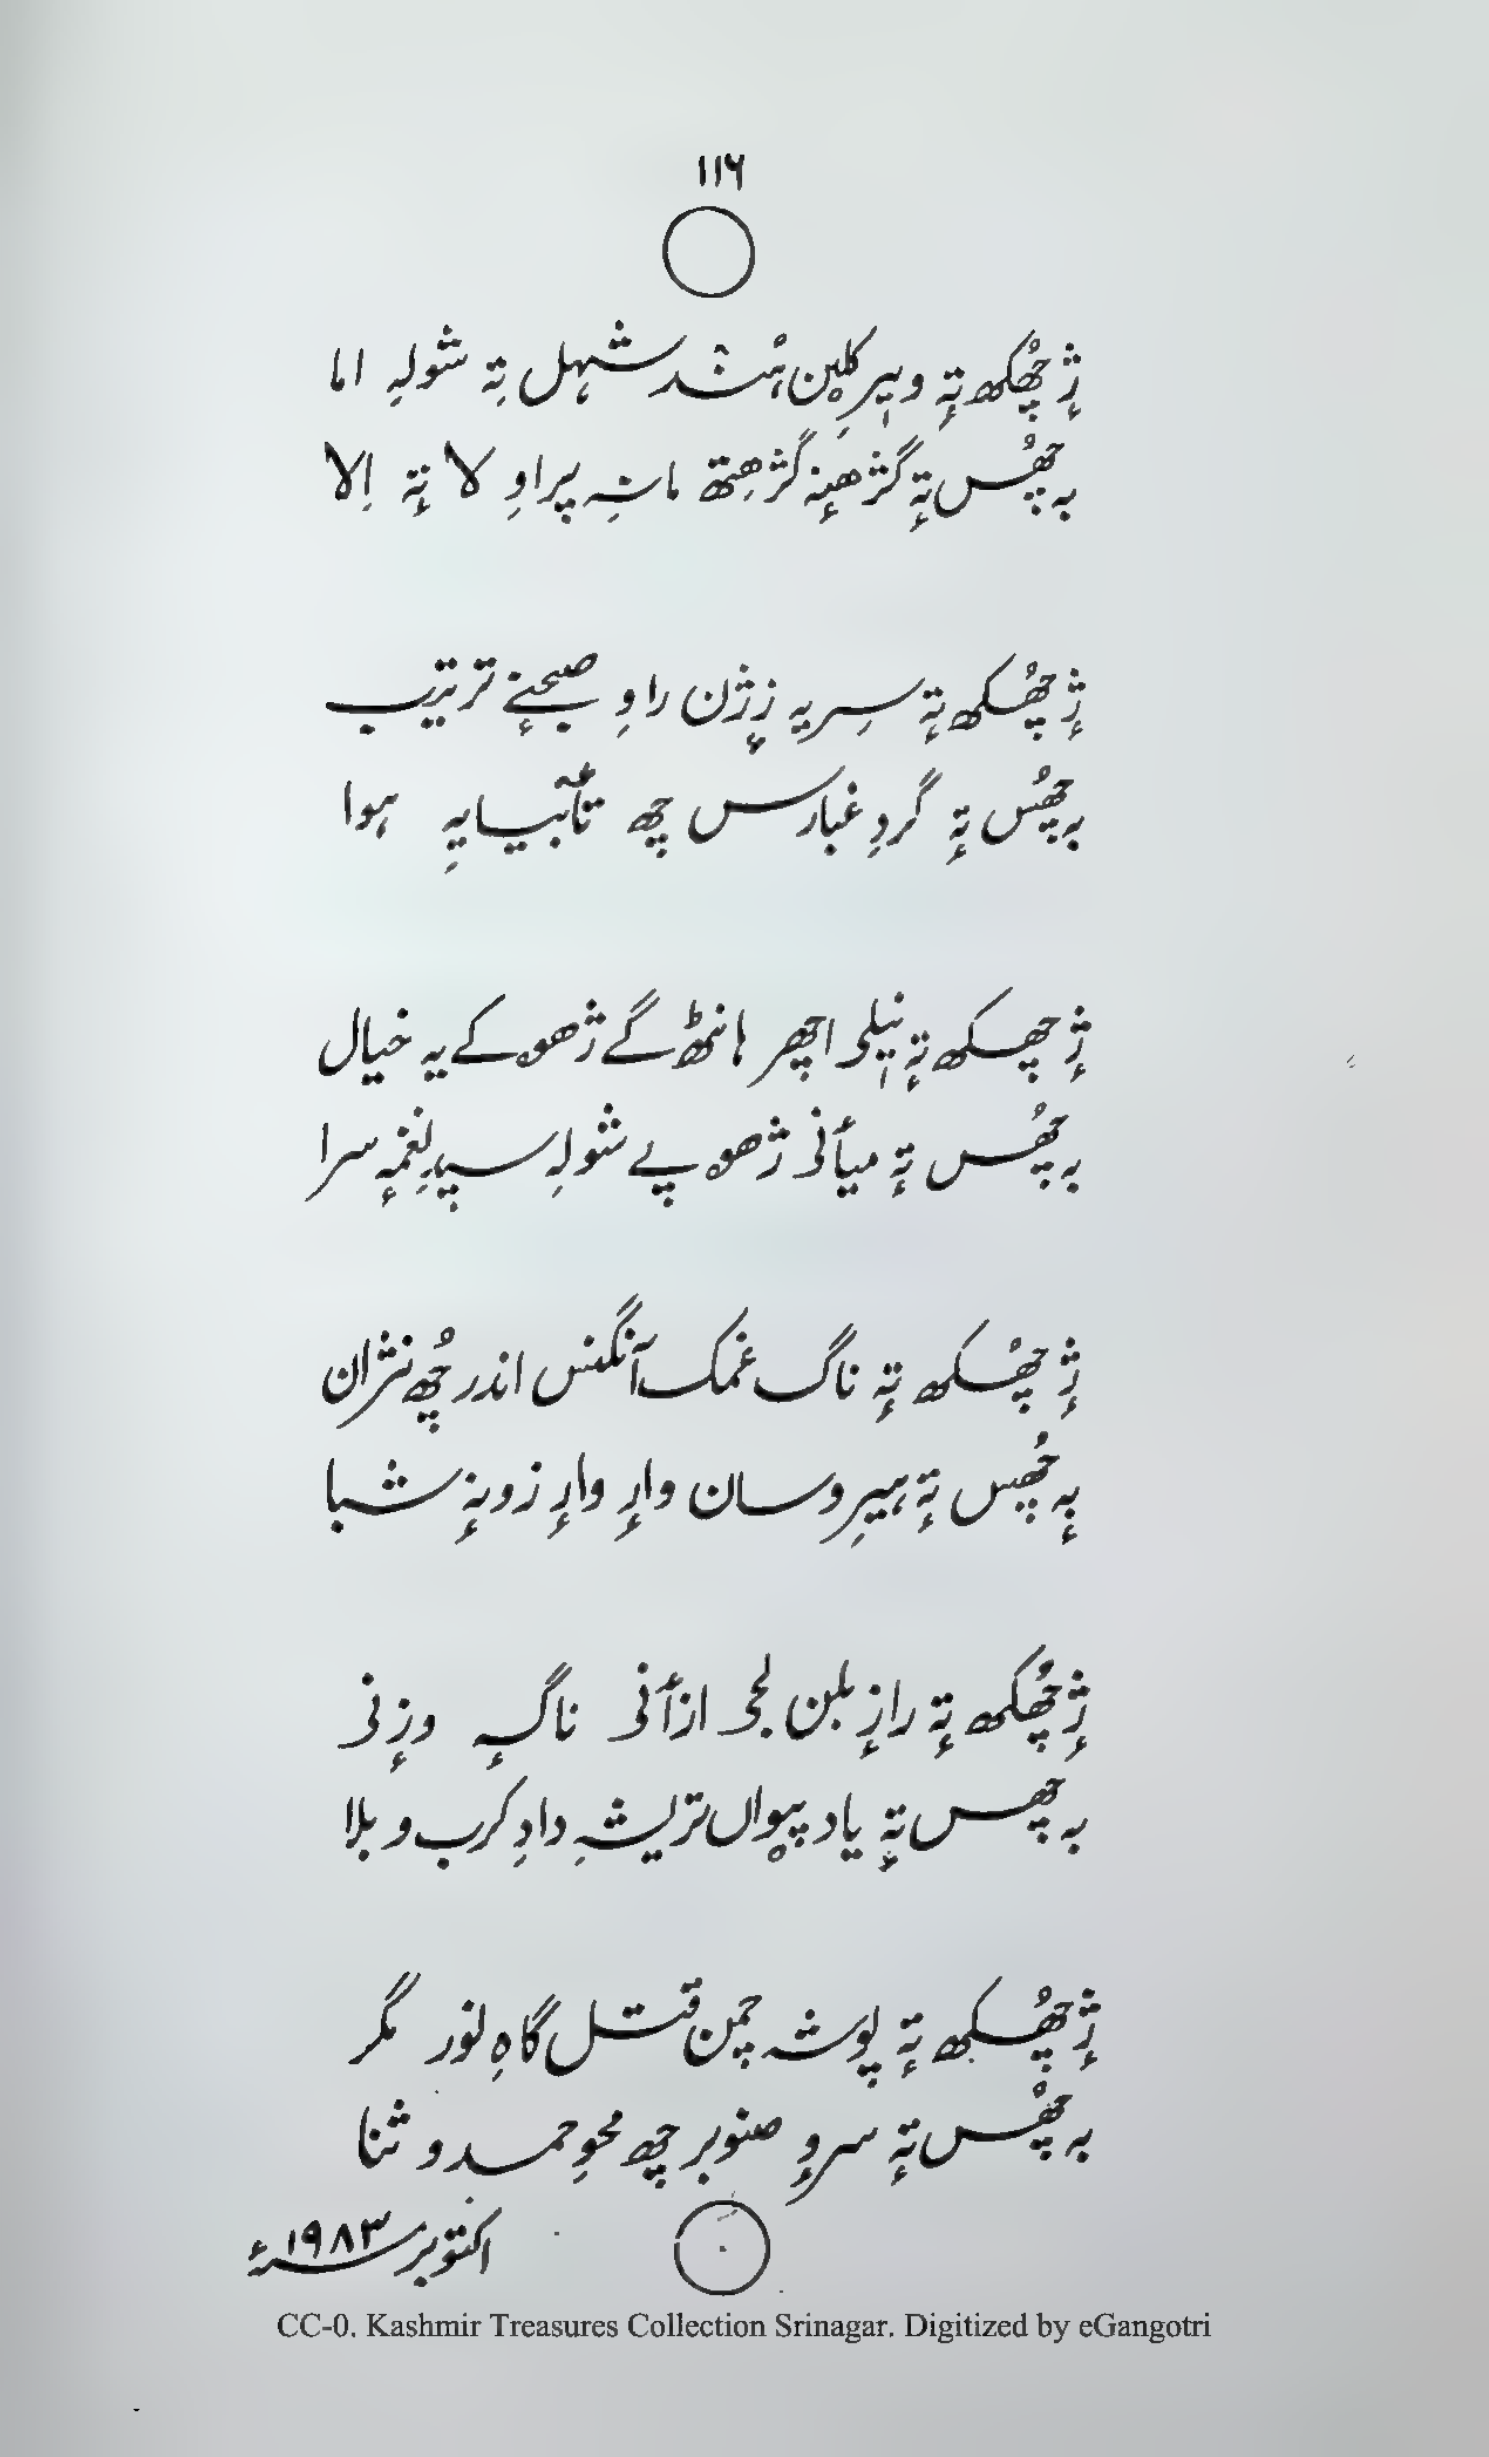 ۱۱۶
ژٕ چھُکھ تہٕ ویٖرِ کلیٚن ہُنٛد شہل تہِ شولہِ اما
بہ چھُس تہٕ گژھنہٕ گژھتھ مانہِ پراوِ لا تہٕ اِلا
ژٕ چھُکھ تہٕ سِریہ زٕژن راوِ صبحنۍ ترتیب
بہ چھُس تہٕ گردِ غبارس چھ تٲبیایہِ ہوا
ژٕ چھکھ تہٕ نیٖلۍ اچھر ہانٹھ گے ژھوکے یہ خیال
بہ چھُس تہٕ میٲنی ژھوپے شولہِ سپدِ نغمہٕ سرا
ژٕ چھُکھ تہٕ ناگ غمک آنگنس اندر چھُ نژان
بہٕ چھُس تہٕ ہیرِ وسان وارٕ وارٕ زونہٕ شبا
ژٕ چھُکھ تہٕ رازٕ بلبن لجی ازٲنی ناگہٕ وزٕنی
بہ چھس تہٕ یاد پیٚوان تریشہِ دادِ کرب و بلا
ژٕ چھُکھ تہٕ پوشہ چمن قتل گاہِ نور مگر
بہ چھُس تہٕ سروِ صنوبر چھ محوِ حمد و ثنا
اکتوبر ۱۹۸۳ء
CC-0. Kashmir Treasures Collection Srinagar. Digitized by eGangotri